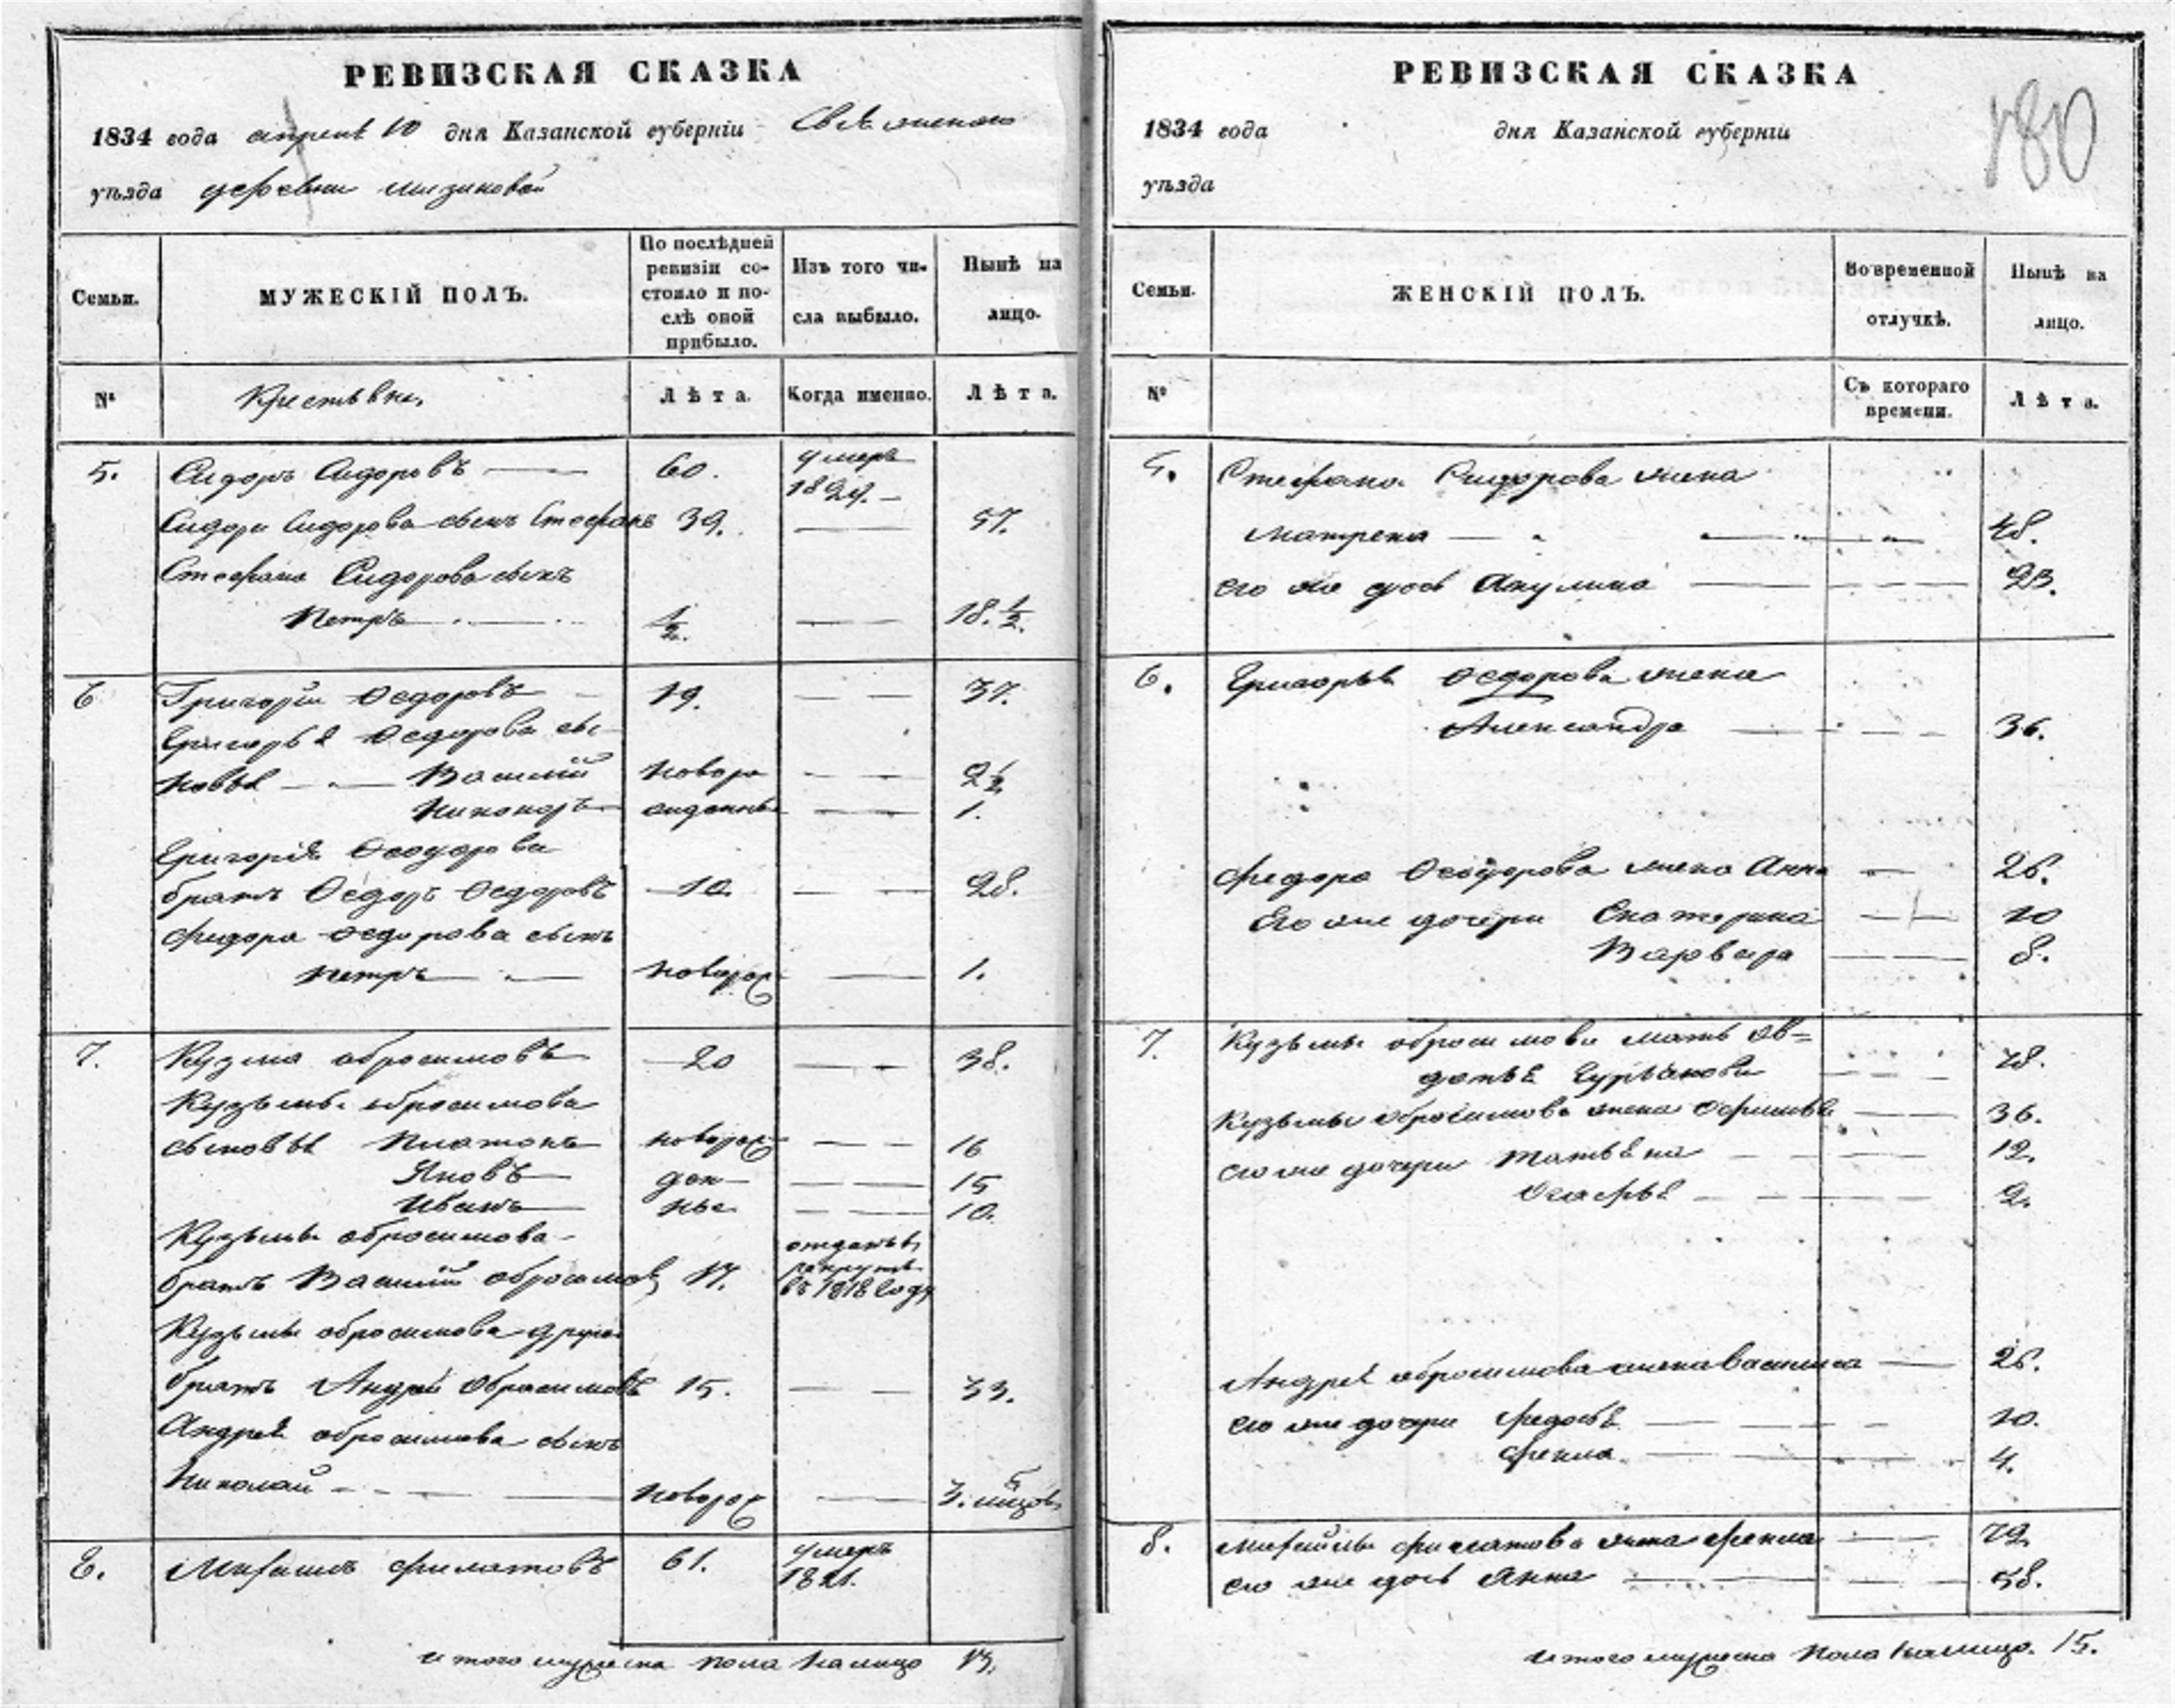 РЕВИЗСКАЯ СКАЗКА
1834 года апреля 10 дня Казанской губернiи
уѣзда деревни
Семьи.
МУЖЕСКІЙ ПОЛЪ.
По послѣдней
ревизіи со-
стояло и по-
слѣ оной
прибыло.
Изъ того чи-
сла выбыло.
Нынѣ на
лицо.
№
Крестьяне,
Лѣта.
Когда именно.
Лѣта.
5. Сидоръ Сидоровъ 60. умеръ
Сидора Сидорова сынъ Стефанъ 39. 57.
Стефана Сидорова сынъ
Петръ 1/2. 18. 1/2.
6 Григорій Ѳедоровъ 19. 37.
Григорья Ѳедорова сы-
новья Василій новоро 2 1/2
Никоноръ жденные 1.
Григорія Ѳеодорова
братъ Ѳедоръ Ѳедоровъ 10. 28.
Федора Ѳедорова сынъ
Петръ новорож 1.
7. Кузма Обросимовъ 20 38.
Кузьмы Обросимова
сыновья Платонъ новорож 16
Яковъ ден 15
Иванъ ные 10.
Кузьмы Обросимова
братъ Василій Обросимов 17. отданъ в рекруты въ 1818 году
Кузьмы Обросимова другой
братъ Андрей Обросимовъ 15. 33.
Андрея Обросимова сынъ
Николай новорож 3.
8. филатовъ 61. умеръ
1821.
итого мужеска пола налицо 13.
РЕВИЗСКАЯ СКАЗКА
180
1834 года дня Казанской губернiи
уѣзда
Семьи.
ЖЕНСКІЙ ПОЛЪ.
Во временной
отлучкѣ.
Нынѣ на
лицо.
№
Съ котораго
времени.
Лѣта.
5. Стефана Сидорова жена
Матрена 48.
его же дочь Акулина 23.
6. Григорья Ѳедорова жена
Александра 36.
Федора Ѳеодорова жена Анна 26.
Его же дочери Екатерина 10
Варвара 8.
7. Кузьмы Обросимова мать Ав=
дотья
Кузьмы Обросимова жена Офимья 36.
его же дочери Татьяна 12.
Агафья 2.
Андрея Обросимова жена Василиса 26.
его же дочери Федосья 10.
Фекла 4.
8. филатова жена Фекла 72
его же дочь Анна 58.
итого пола налицо. 15.